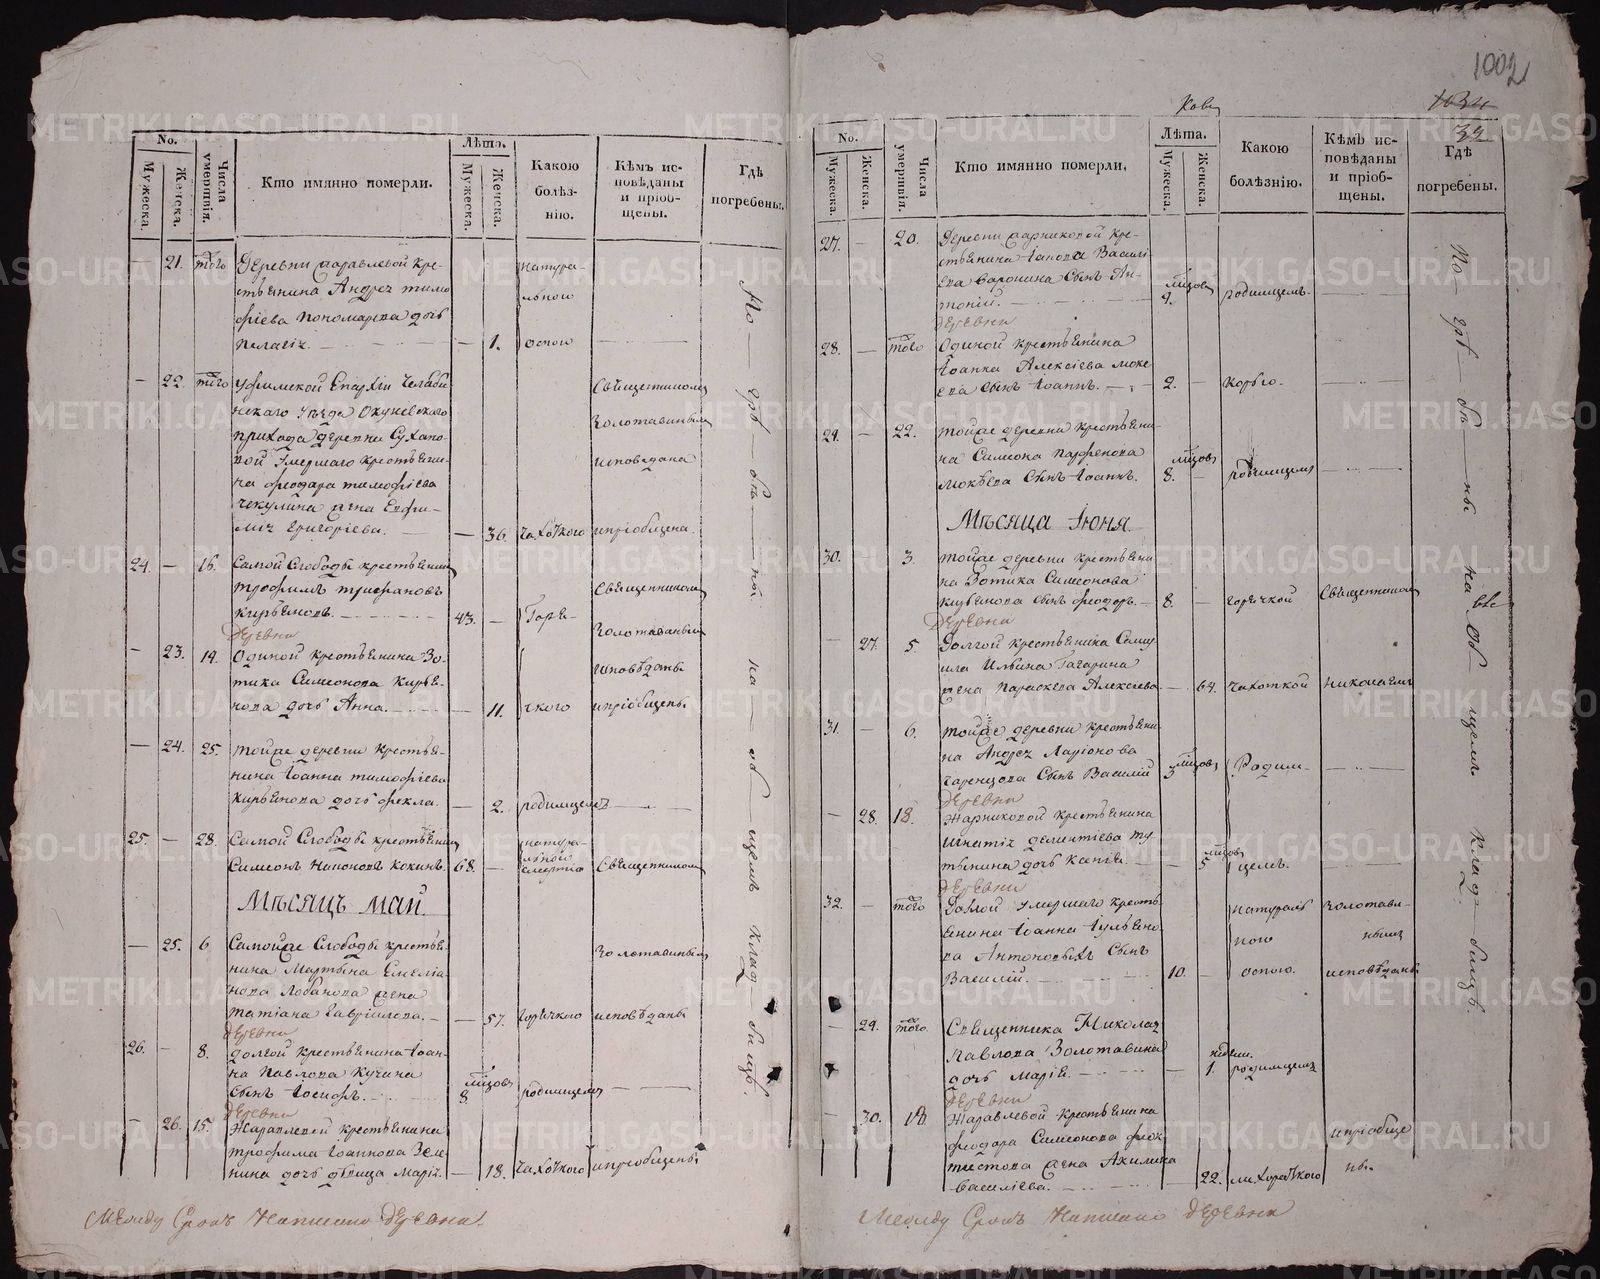 1002
1634
32
Ковъ
No.
Мужеска.
Женска.
Числа умертвія.
Кто имянно померли.
Лѣта.
Мужеска.
Женска.
Какою болѣз-нію.
Кѣмъ ис-повѣданы и пріоб-щены.
Гдѣ погребены.
— 21. того Деревни Жаравлевой кре-
стьянина Андрея Тимо-
фіева Пономарева дочь
Пелагія. — 1.
натура-
льною
оспою
— 22. того Уфимской Епархіи Челяби-
нскаго уѣзда Окуневскаго
прихода деревни Сухано-
вой умершаго крестьяни-
на Феодора Тимофіева
Чекулина жена Евфи-
мія Григоріева. — 36. чахоткою
Священникомъ
Золотавинымъ
исповѣдана
и пріобщена.
24. — 16. Самой Слободы крестьянинъ
Трофимъ Трифановъ
Кирьяновъ. 43. — Горя-
Священникомъ
Золотавинымъ
деревни
— 23. 19. Одиной крестьянина Зо-
тика Симеонова Кирья-
нова дочь Анна. — 11. чкою
исповѣданы
и пріобщены
— 24. 25. тойже деревни крестья-
нина Іоанна Тимофіева
Кирьянова дочь Фекла. — 2. родимцемъ
25. — 28. Самой Слободы крестьянинъ
Симеонъ Напоновъ Кокинъ. 68. —
натура-
льною
смертію
Священникомъ
Мѣсяцъ май.
— 25. 6 Самойже Слободы крестья-
нина Мартына Емелія-
нова Лобанова жена
Татіана Гавріилова. — 57. горячкою
Золотавинымъ
исповѣданы
деревни
26. — 8. Долгой крестьянина Іоан-
на Павлова Кучина
сынъ Іосифъ. мѣсцовъ 8. родимцемъ
деревни
— 26. 15. Жаравлевой крестьянина
Трофима Іоаннова Зеле-
нина дочь дѣвица Марія. — 18. чахоткою и пріобщены.
По — гре — бе — ны на — об — щемъ клад — бищѣ.
Между строкъ написано деревни.
No.
Мужеска.
Женска.
Числа умертвія.
Кто имянно померли.
Лѣта.
Мужеска.
Женска.
Какою болѣзнію.
Кѣмъ ис-повѣданы и пріоб-щены.
Гдѣ погребены.
27. — 20. Деревни Жарниковой кре-
стьянина Іакова Василі-
ева Воронина сынъ Ан-
тоній. мѣсцовъ 9. родимцемъ
деревни
28. — того Одиной крестьянина
Іоанна Алексіева Моке-
ева сынъ Іоаннъ. 2. — корью.
29. — 22. тойже деревни крестьяни-
на Симеона Парфенова
Мокѣева сынъ Іоаннъ. мѣсцовъ 8. родимцемъ
Мѣсяца Іюня
30. 3. тойже деревни крестьяни-
на Зотика Симеонова
Кирьянова сынъ Феодоръ. 8. — горячкой Священникомъ
деревни
— 27. 5. Долгой крестьянина Саму-
ила Ильина Гагарина
жена Параскева Алексіева. — 64. чахоткой Николаемъ
31. — 6. тойже деревни крестьяни-
на Андрея Ларіонова
Чаренцова сынъ Василій мѣсцовъ 3 Родим-
деревни
— 28. 18. Жарниковой крестьянина
Игнатія Дементіева Ту-
тынина дочь Ксенія. мѣсцовъ 5 цемъ.
деревни
32. — того Долгой умершаго кресть-
янина Іоанна Іульяно-
ва Антоновыхъ сынъ
Василій. 10. —
натураль-
ною
оспою.
Золотави-
нымъ
исповѣданы
— 29. того Священника Николая
Павлова Золотавина
дочь Марія. недели. 1. родимцемъ
деревни
— 30. 18. Жаравлевой крестьянина
Феодора Симеонова Фиок-
тистова жена Акилина
Василіева. — 22. лихорадкою
и пріобще-
ны.
По — гре — бе — ны на об — щемъ клад — бищѣ.
Между строкъ написано деревни
METRIKI.GASO-URAL.RU